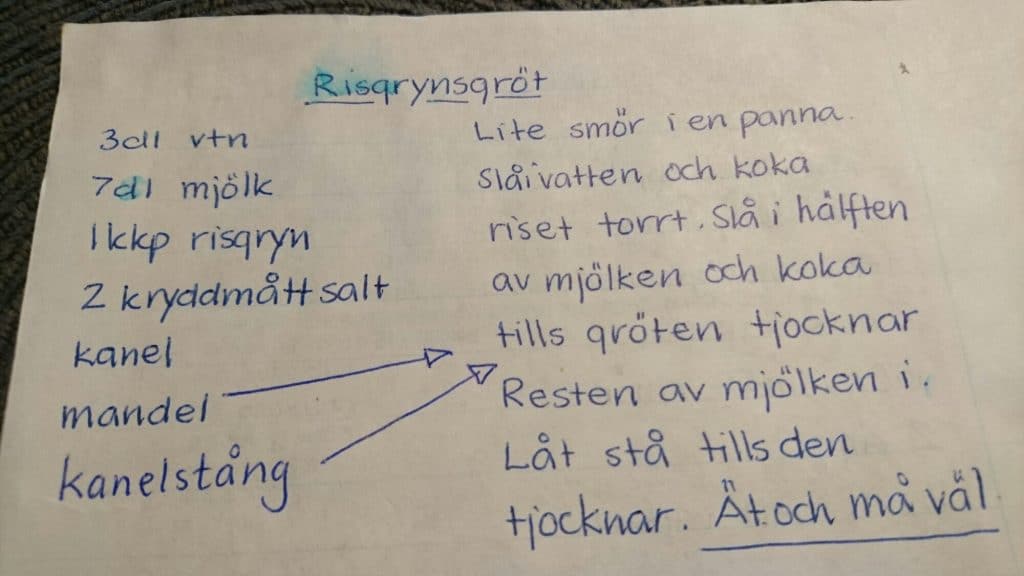 Risgrynsgröt
3dl vtn
7dl mjölk
1kkp risgryn
2 kryddmått salt
kanel
mandel
kanelstång
Lite smör i en panna.
Slå i vatten och koka
riset torrt. Slå i hälften
av mjölken och koka
tills gröten tjocknar
Resten av mjölken i.
Låt stå tills den
tjocknar. Ät och må väl